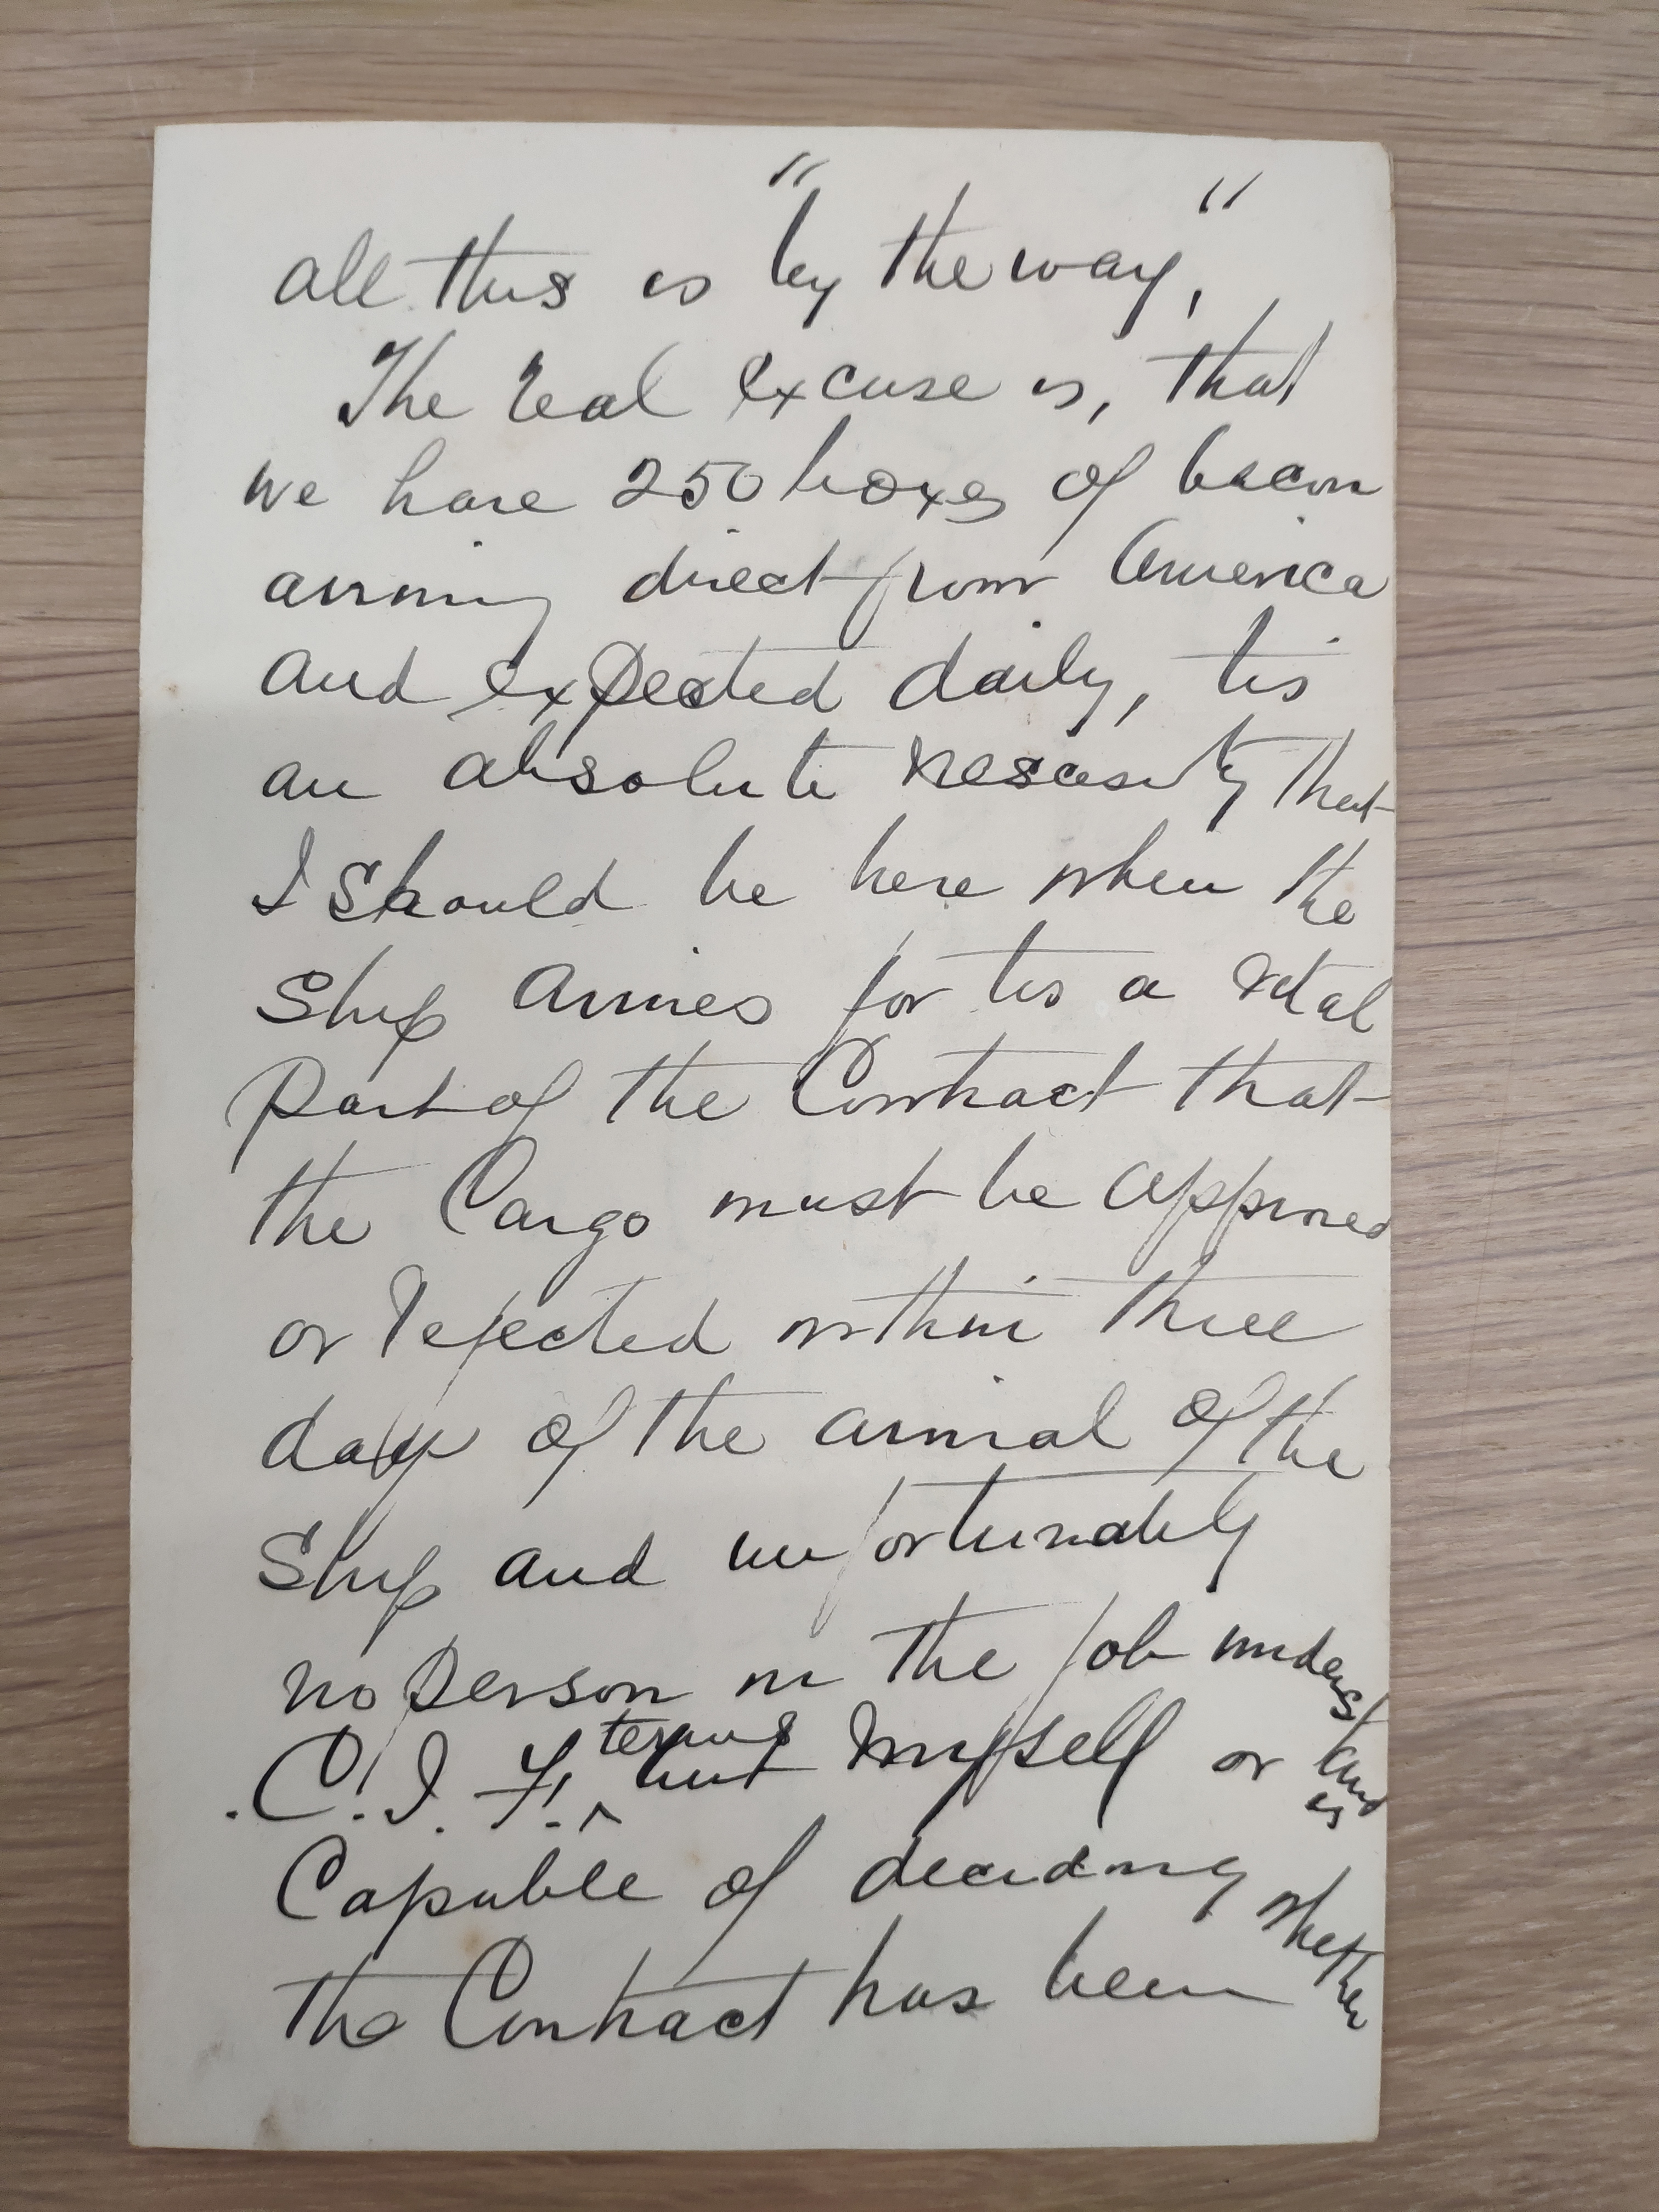 all this is "by the way",
The real excuse is, that
we have 250 boxes of bacon
arriving direct from America
and expected daily, tis
an absolute nescesity that
I should be here when the
Ship arrives for tis a vital
part of the Contract that
the Cargo must be approved
or rejected within three
days of the arrival of the
Ship and unfortunately
no person in the job understand
C.I.F. terms but myself or is
Capable of deciding whether
the Contract has been